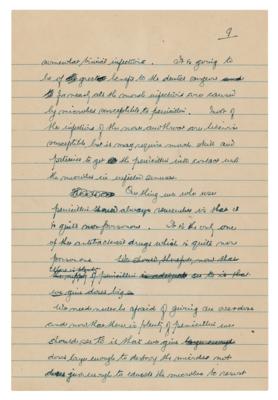 9
somewhat trivial infections. It is going to
be of great help to the dental surgeon and
for nearly all the mouth infections are caused
by microbes susceptible to penicillin. Most of
the infections of the nose and throat are likewise
susceptible but it may require much skill and
patience to get the penicillin into contact with
the microbes in infected sinuses.
One thing we who use
penicillin should always remember is that it
is quite non-poisonous. It is the only one
of the antibacterial drugs which is quite non
poisonous. We should therefore, now that
there is plenty
of penicillin is adequate see to it that
we give doses big
We need never be afraid of giving an overdose
and now that there is plenty of penicillin we
should see to it that we give large enough
doses large enough to destroy the microbes not
just enough to educate the microbes to resist